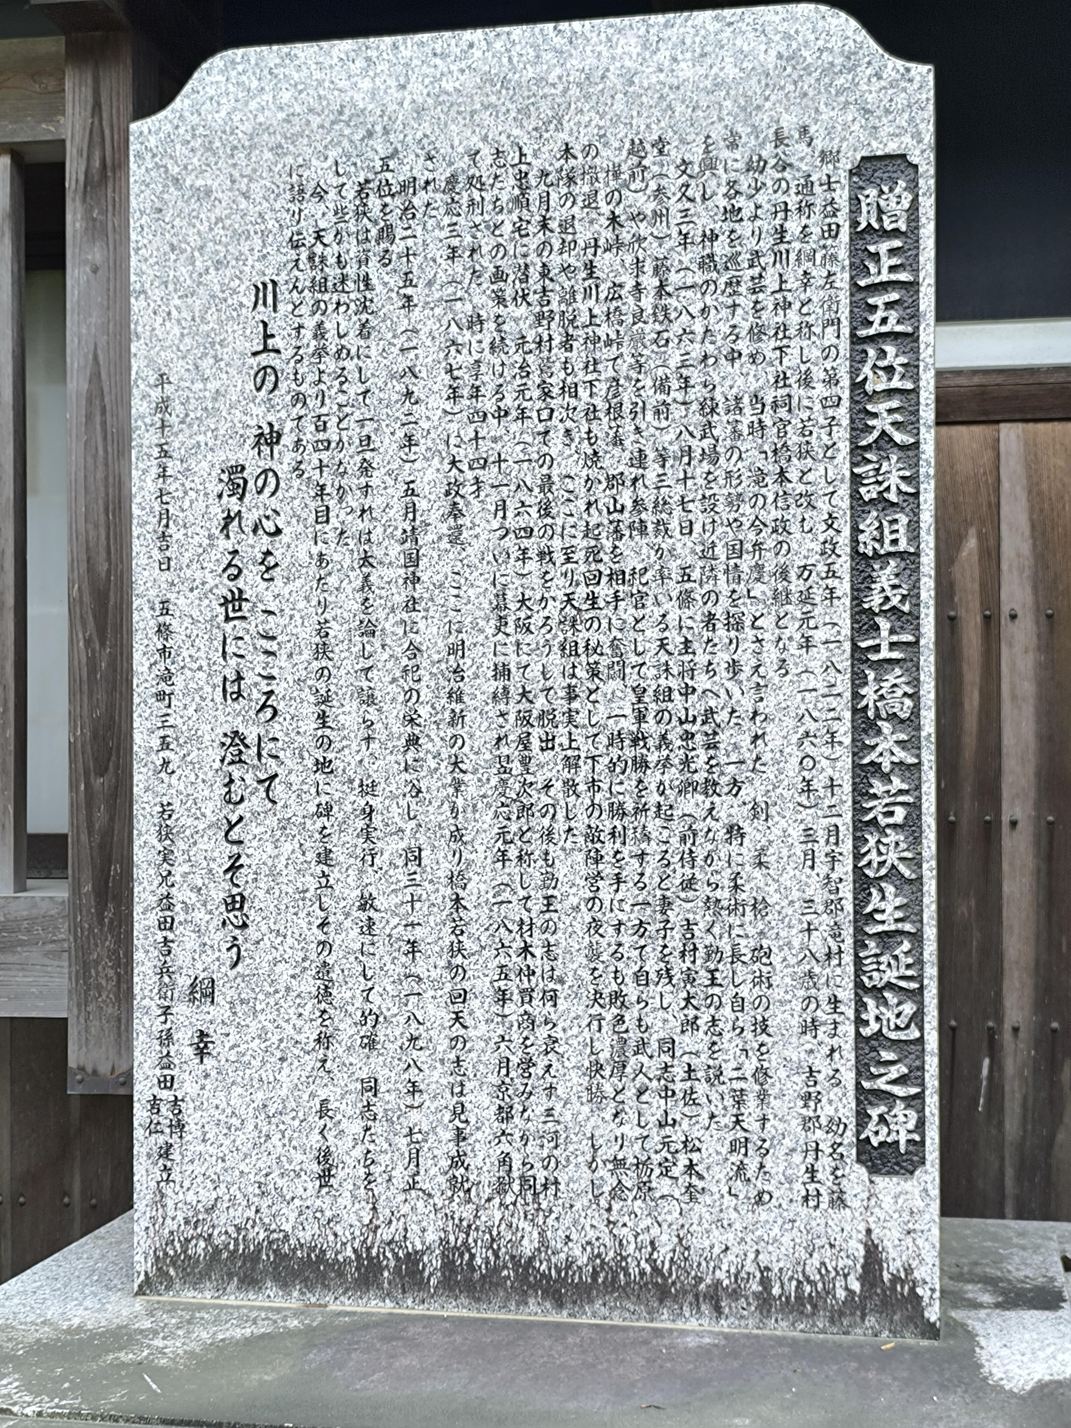 贈正五位天誅組義士橋本若狭生誕地之碑
郷士益田藤左衛門の第四子として文政五年(一八二二年)十二月宇智郡滝村に生まれる 幼名を藤
馬 通称を綱幸と称し後に若狭と改む 万延元年(一八六〇年)三月 三十八歳の時 吉野郡丹生村
長谷の丹生川上神社下社祠官橋本信政の後継となる
幼少より武芸を修め 当時「滝の今弁慶」とさえ言われた 剣 柔 槍 砲術の技を修業するため
常に各地を巡歴する中 諸藩の形勢や国情を探り歩いた 一方 特に柔術に長し自ら「二葉天明流」
を興し 神職のかたわら錬武場を設け近隣の者たちへ武芸を教えながら熱く勤王の志を説いた
文久三年(一八六三年)八月十七日 五條に主将中山忠光卿(前侍従)吉村寅太郎(土佐)松本奎
堂(参州)藤本鉄石(備前)等三総裁が率いる天誅組の義挙が起こると妻子を残し 同志中山元定(
越前)や欣求寺良厳等を引き連れ参陣 祀官として皇軍戦勝を祈祷する一方で自らも武人として栃原
樺の木峠 広橋峠で彦根藩 郡山藩を相手に奮闘 一時的に勝利を手にするも敗色濃厚となり無念
の撤退 丹生川上神社下社も焼かれ起死回生の秘策として下市の敵陣営の夜襲を決行し快勝 しかし
本隊の退却や離脱者も相次ぎ ここに至り天誅組は事実上解散した
九月末の東吉野村鷲家口での最後の戦をかろうじて脱出 その後も勤王の志は何ら衰えず三河の村
上忠順宅に潜伏 元治元年(一八六四年)大阪にて大阪屋豊次郎と称して材木仲買商を営みながら同
志たちとの画策を続ける中 十一月ついに幕吏に捕縛され翌慶応元年(一八六五年)六月京都六角獄
で処刑された 時に享年四十四才
慶応三年(一八六七年)に大政奉還 ここに明治維新の大業が成り橋本若狭の回天の志は見事成就
された
明治二十五年(一八九二年)五月靖国神社に合祀の栄典に浴し 同三十一年(一八九八年)七月正
五位を賜る
若狭は資性沈着にして一旦発すれば大義を論じて譲らず 挺身実行 敏速にして的確 同志たちを
して些かも迷わしめることがなかった
今 天誅組の義挙より百四十年目にあたり若狭の誕生の地に碑を建立しその遺徳を称え 長く後世
に語り伝えんとするものである
川上の 神の心を こころにて
濁れる世には 澄むとそ思う
綱 幸
平成十五年七月吉日 五條市滝町三五九 若狭実兄益田吉兵衛子孫益田 吉博 吉仁 建立